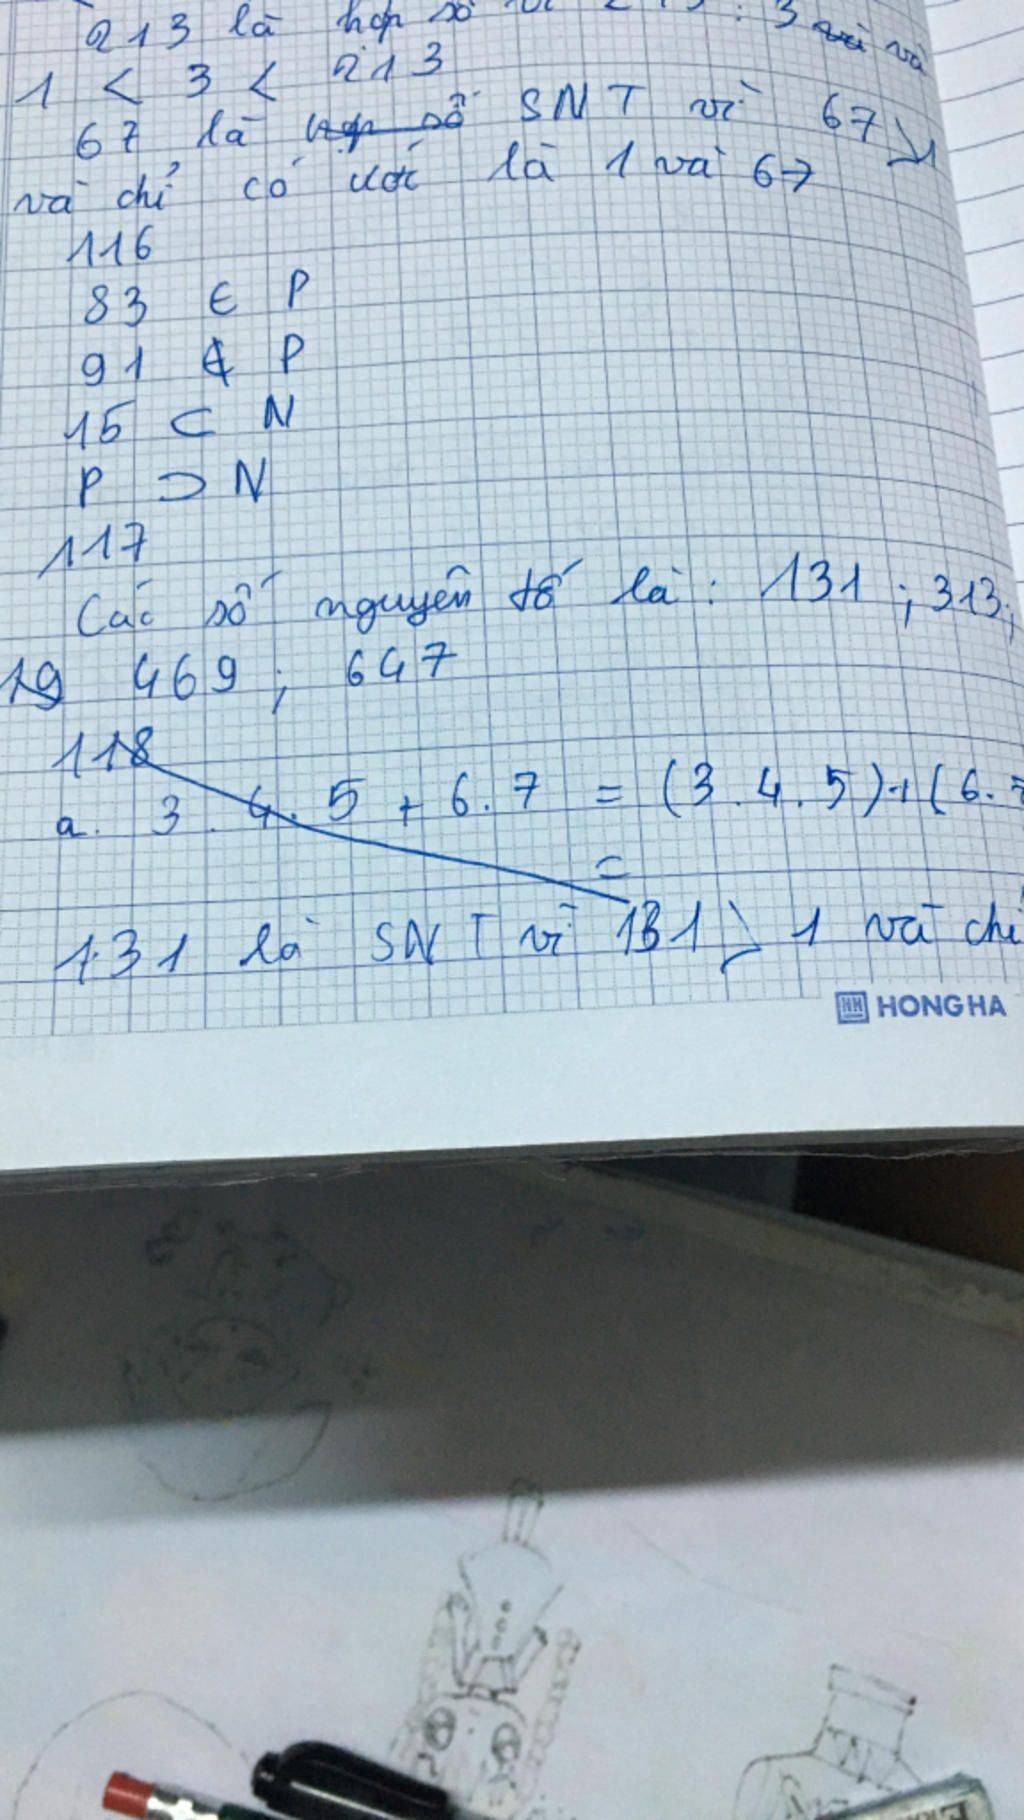 213 là hợp số vì 213 : 3 và
1 < 3 < 213
67 là hợp số SNT vì 67 > 1
và chỉ có ước là 1 và 67
116
83 ∈ P
91 ∉ P
15 ⊂ N
P ⊃ N
117
Các số nguyên tố là : 131 ; 313;
19 469 ; 647
118
a. 3 . 4 . 5 + 6 . 7 = (3 . 4 . 5) + (6 . 7
=
131 là SNT vì 131 > 1 và chỉ
HONG HA